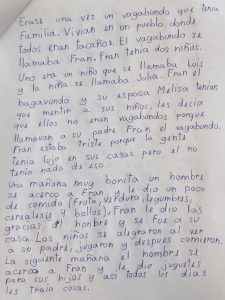 Erase una vez un vagabundo que tenia
familia. Vivian en un pueblo donde
todos eran tacaños. El vagabundo se
llamaba Fran. Fran tenia dos niños.
Uno era un niño que se llamaba Luis
y la niña se llamaba Julia. Fran el
bagavundo y su esposa Melisa tenian
que mentir a sus niños, les decia
que ellos no eran vagabundos porque
llamavan a su padre Fran el vagabundo.
Fran estaba triste porque la gente
tenia lujo en sus casas pero el no
tenia nada de eso.
Una mañana muy bonita un hombre
se acerco a Fran y le dio un poco
de comida (fruta, verdura, legumbres,
cereales y bollos), Fran le dio las
gracias al honbre y se fue a su
casa. Los niños se alegraron al ver
a su padre, jugaron y despues comieron.
La siguiente mañana el hombre se
acerco a Fran y le dio juguetes
para sus hijos y asi todos los dias
les traia cosas.